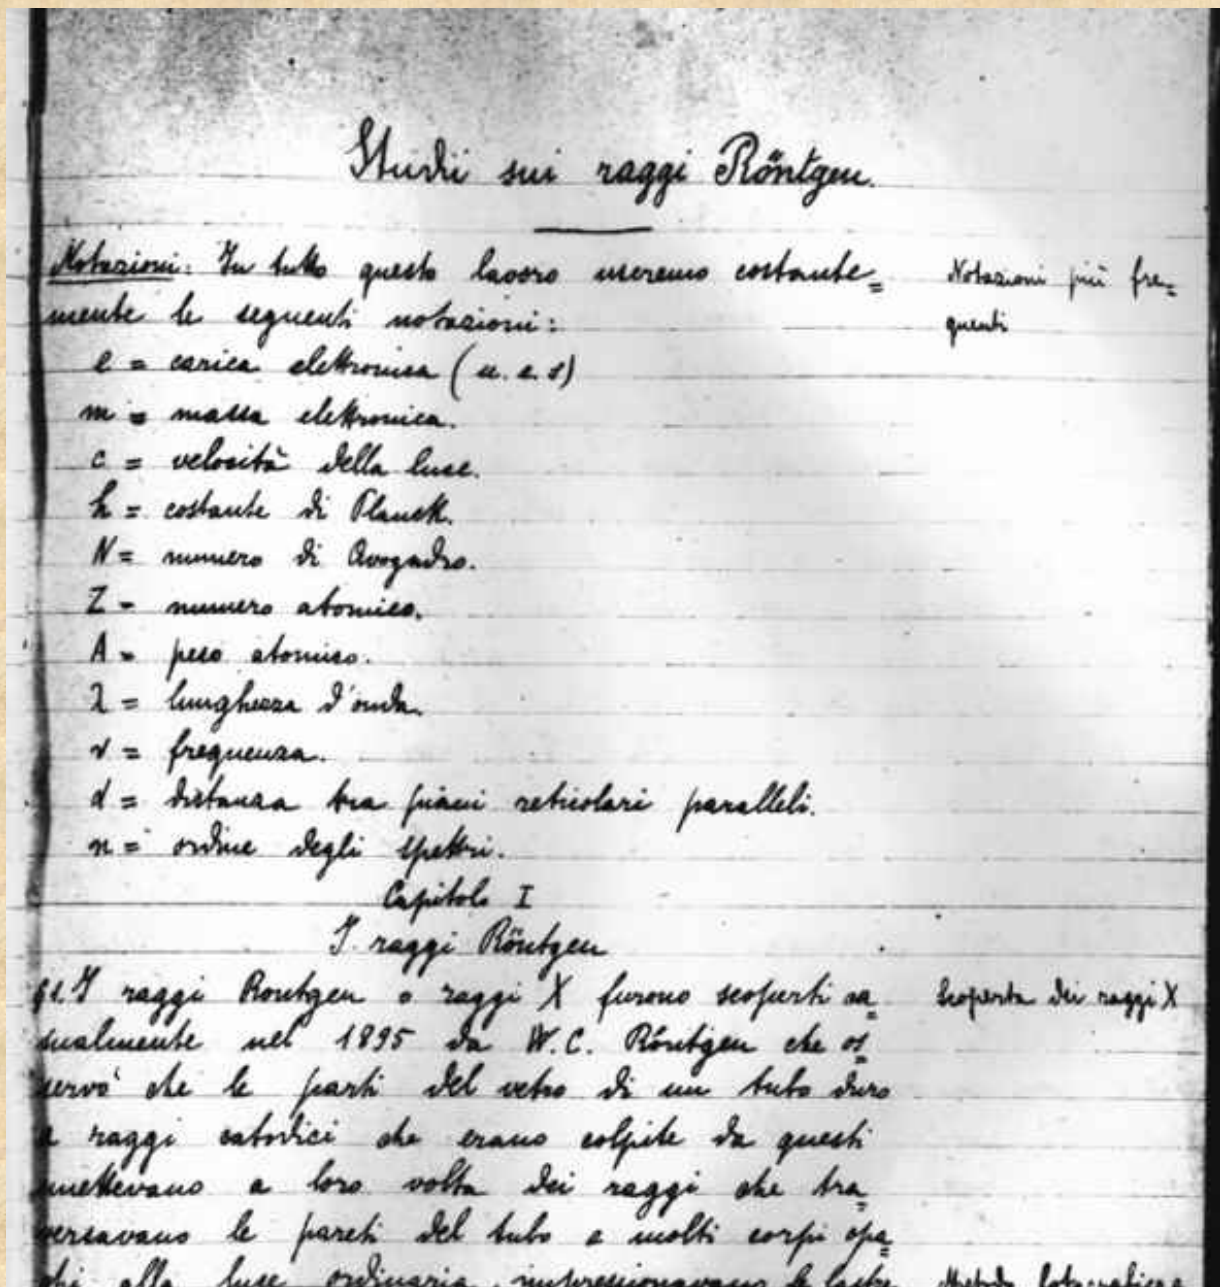 Studii sui raggi Röntgen.
Notazioni: In tutto questo lavoro useremo costante=
mente le seguenti notazioni:
Notazioni più fre=
quenti
e = carica elettronica (u. e. s)
m = massa elettronica.
c = velocità della luce.
h = costante di Planck.
N = numero di Avogadro.
Z = numero atomico.
A = peso atomico.
λ = lunghezza d'onda.
ν = frequenza.
d = distanza tra piani reticolari paralleli.
n = ordine degli spettri.
Capitolo I
I raggi Röntgen
§1. I raggi Rontgen o raggi X furono scoperti ca=
sualmente nel 1895 da W. C. Röntgen che os=
servò che le parti del vetro di un tubo duro
a raggi catodici che erano colpite da questi
emettevano a loro volta dei raggi che tra=
versavano le pareti del tubo e molti corpi opa=
chi alla luce ordinaria, impressionavano le lastre
Scoperta dei raggi X
Metodo fotografico